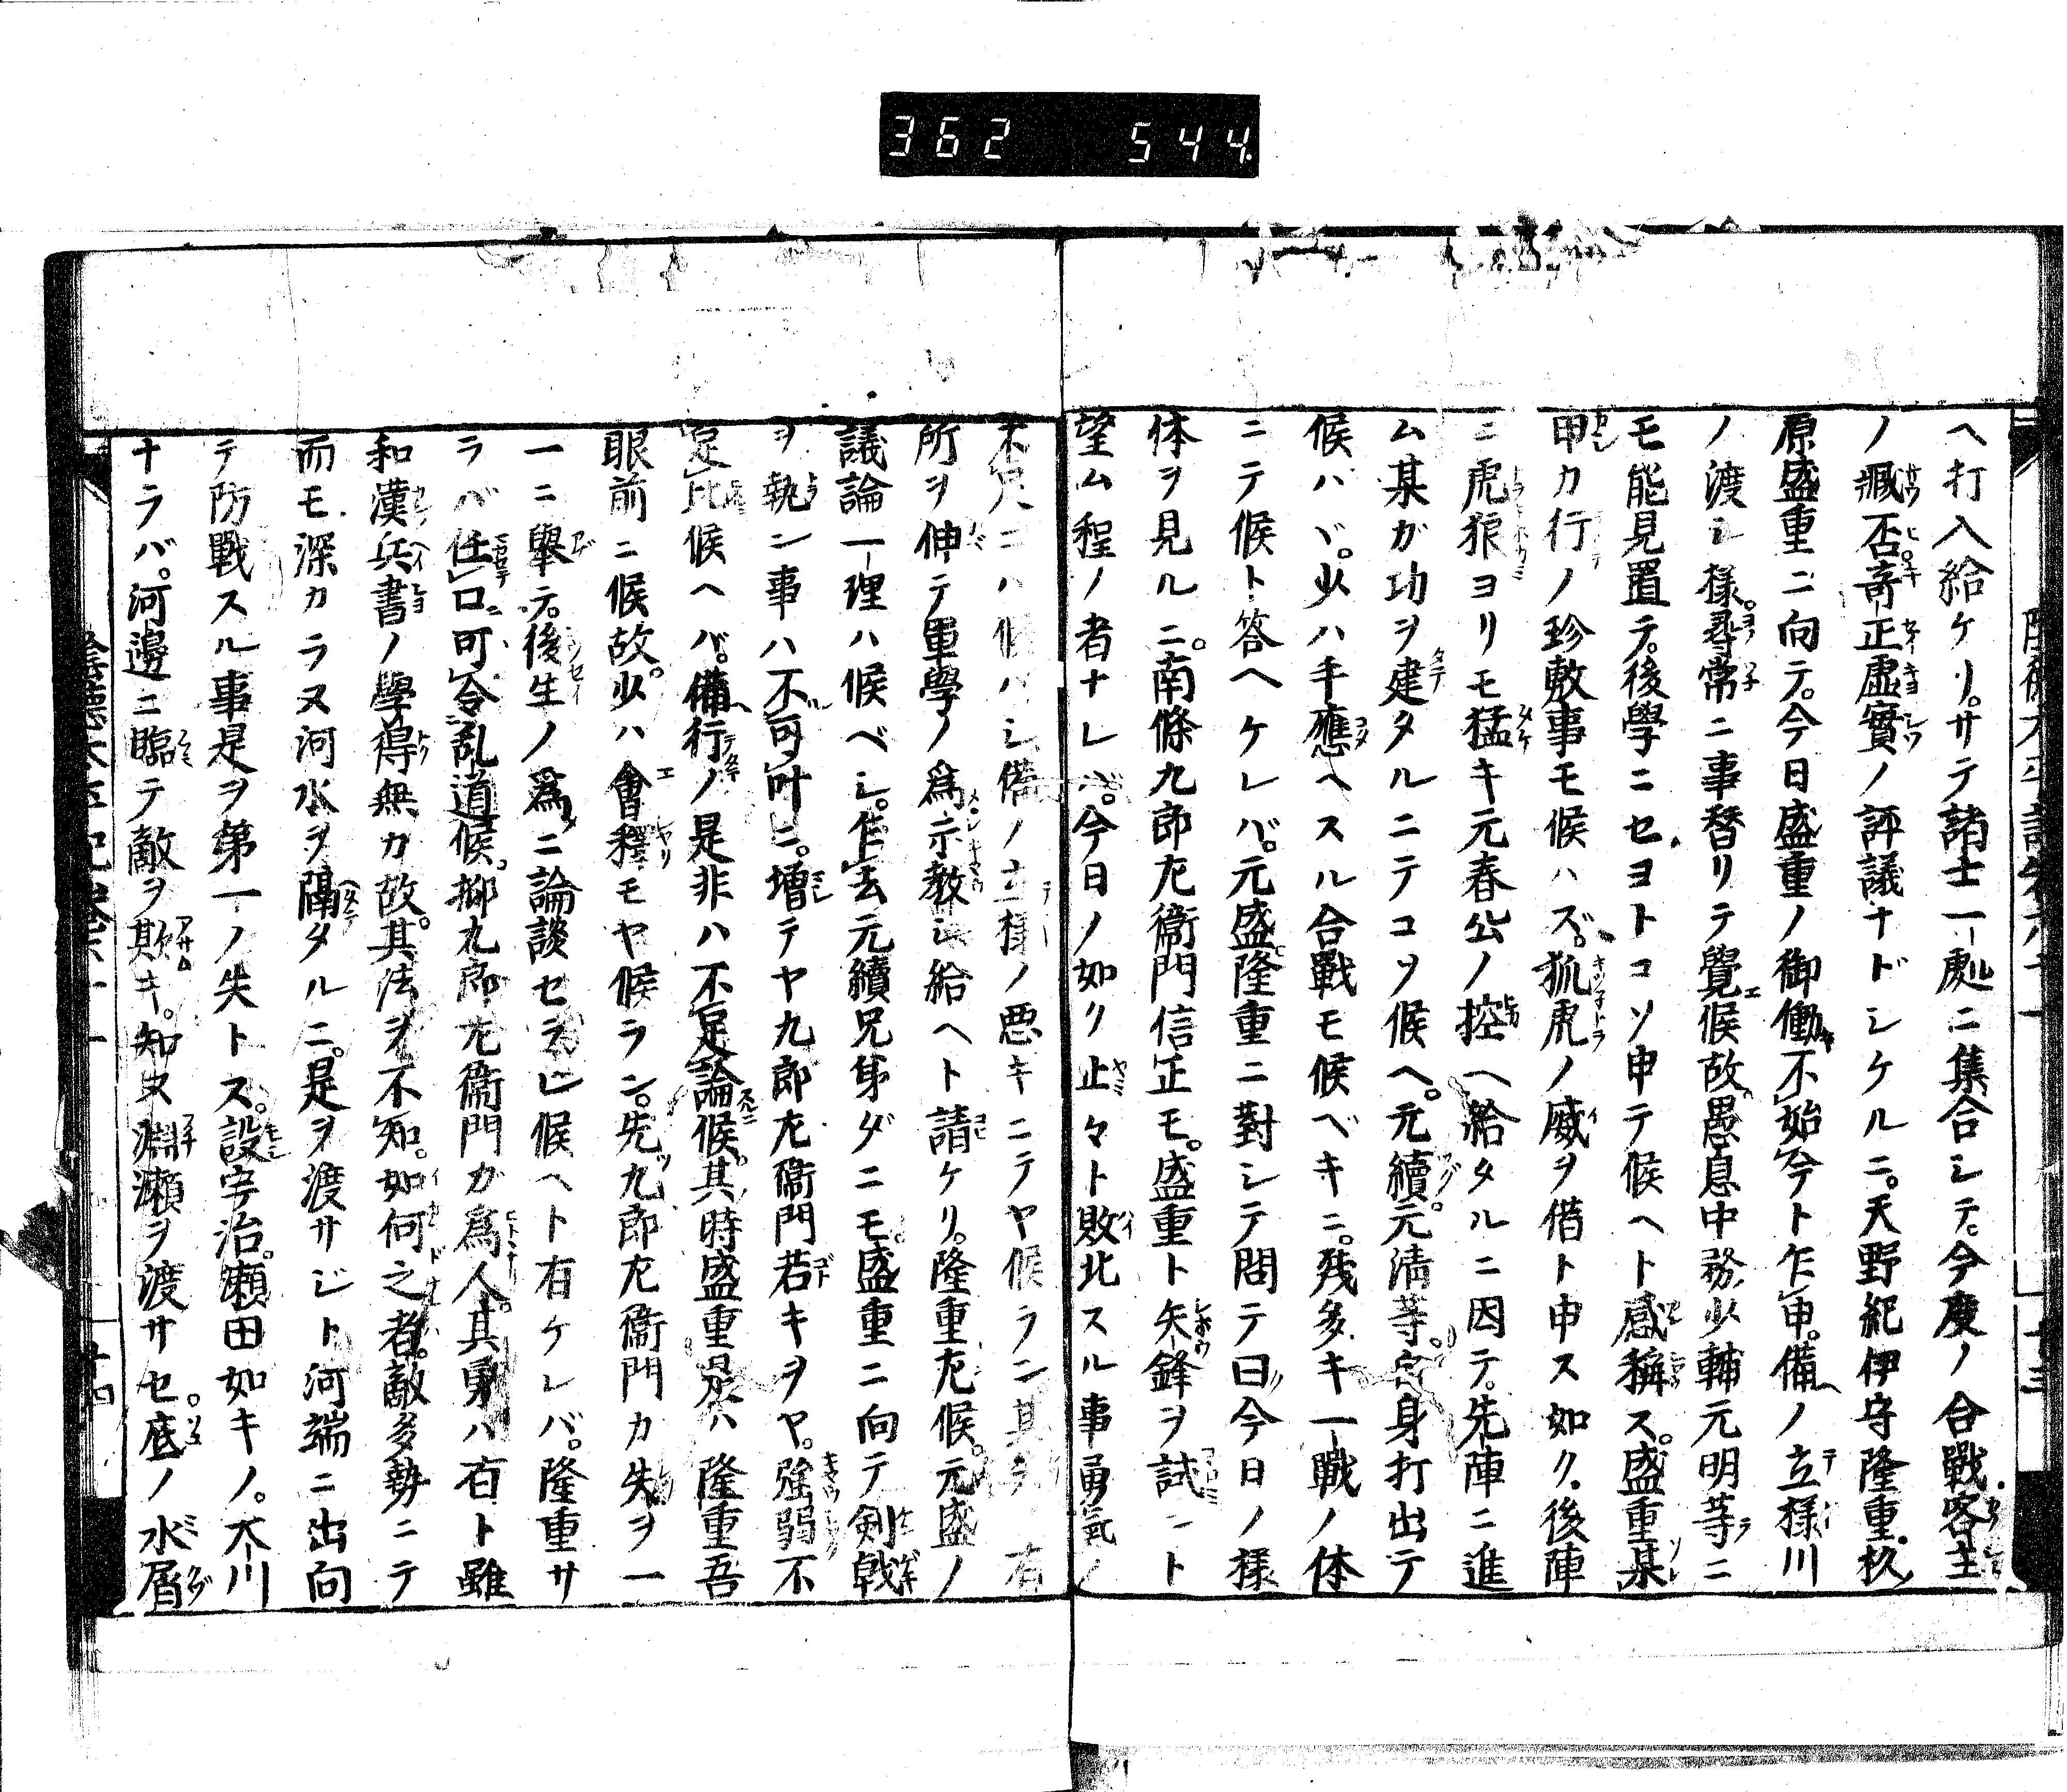 362 544.
ヘ打入給ケリ。サテ諸士一處ニ集合シテ。今度ノ合戰客主
ノ臧否奇正虛實ノ評議ナドシケルニ。天野紀伊守隆重。杉
原盛重ニ向テ。今日盛重ノ御働不始今ト乍申。備ノ立様川
ノ渡シ様。尋常ニ事替リテ覺候故。愚息中務少輔元明等ニ
モ能見置テ。後學ニセヨトコソ申テ候ヘト感稱ス。盛重某
申カ行ノ珍敷事モ候ハズ。狐虎ノ威ヲ借ト申ス如ク。後陣
ニ虎狼ヨリモ猛キ元春公ノ控ヘ給タルニ因テ。先陣ニ進
ム某ガ功ヲ建タルニテコソ候ヘ。元續。元清等。身打出テ
候ハヾ。少ハ手應ヘスル合戰モ候ベキニ。殘多キ一戰ノ体
ニテ候ト答ヘケレバ。元盛隆重ニ對シテ問テ曰今日ノ様
体ヲ見ルニ。南條九郎左衞門信正モ。盛重ト矢鋒ヲ試ント
望ム程ノ者ナレバ。今日ノ如ク止々ト敗北スル事勇氣ノ
不足ニハ候ハシ備ノ立様ノ惡キニテヤ候ラン其 有
所ヲ伸テ軍學ノ爲示教シ給ヘト請ケリ。隆重尤候。元盛ノ
議論一理ハ候ベシ。乍去元續兄弟ダニモ。盛重ニ向テ劍戟
ヲ執ン事ハ不可叶ニ。増テヤ九郎左衞門若キヲヤ。強弱不
足比候ヘバ。備行ノ是非ハ不足論候。其時盛重是ハ隆重吾
眼前ニ候故。少ハ會釋モヤ候ラン。先九郎左衞門カ失ヲ一
一ニ擧テ。後生ノ爲ニ論談セラレ候ヘト有ケレバ。隆重サ
ラバ任口可令乱道候。抑九郎左衞門ガ爲人。其勇ハ有ト雖
和漢兵書ノ學得無カ故。其法ヲ不知。如何之者。敵多勢ニテ
而モ深カラヌ河水ヲ隔タルニ。是ヲ渡サジト河端ニ出向
テ防戰スル事是ヲ第一ノ失トス。設宇治。瀬田如キノ。大川
ナラバ。河邊ニ臨テ敵ヲ欺キ。知ヌ淵瀬ヲ渡サセ。底ノ水屑